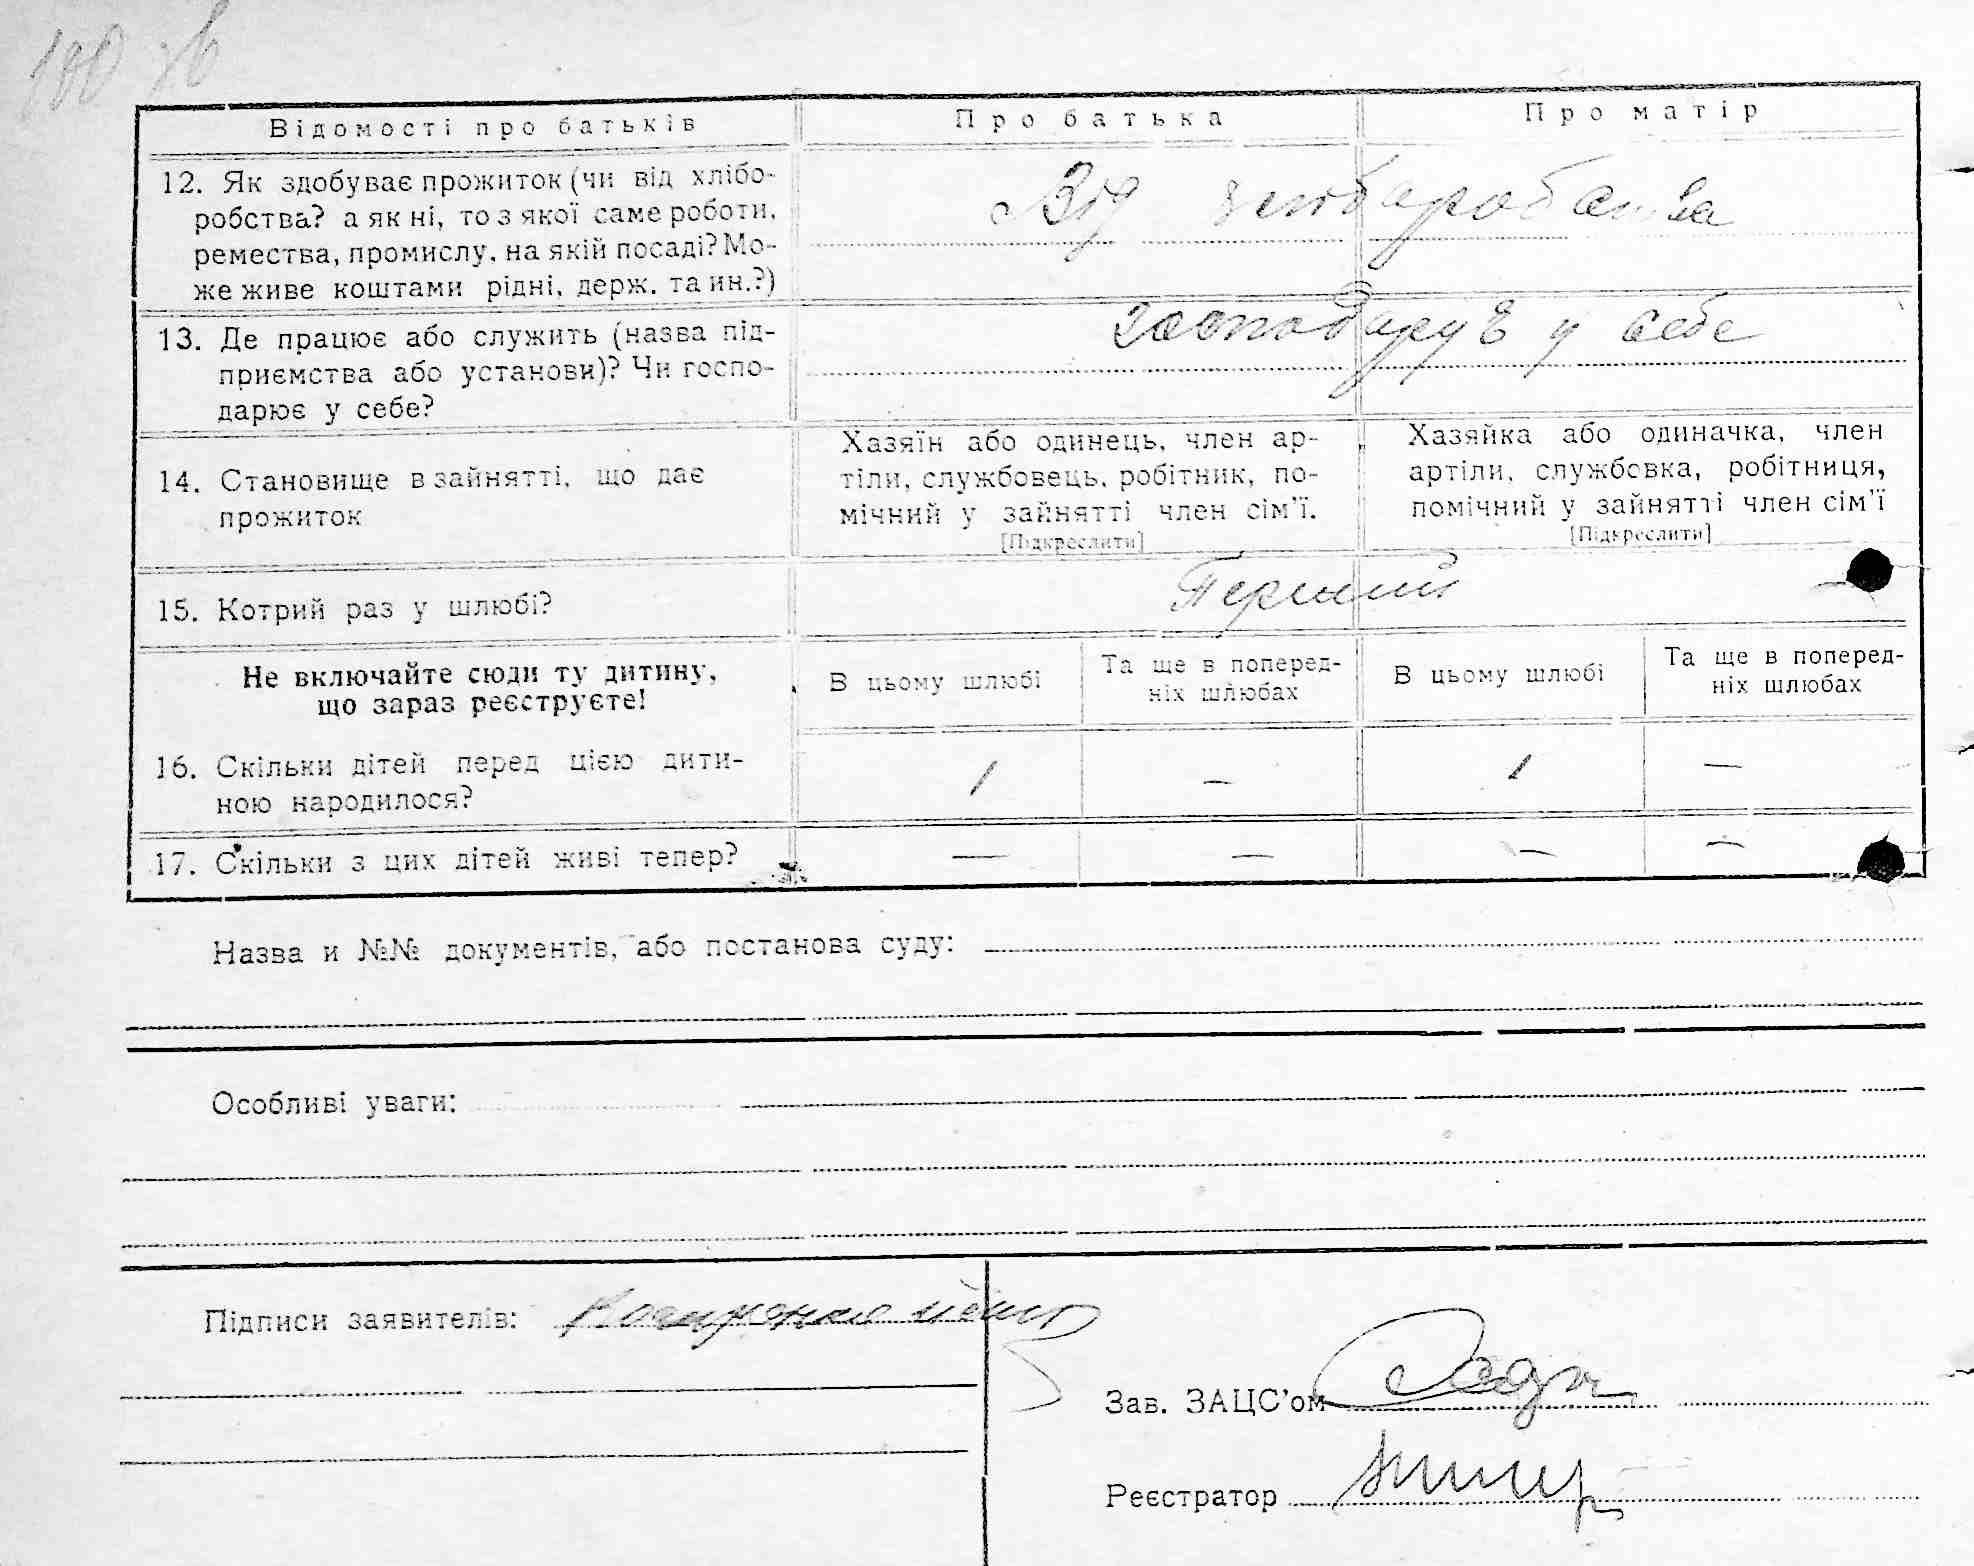 Відомості про батьків
Про батька
Про матір
12. Як здобуває прожиток (чи від хлібо-
робства? а як ні, то з якої саме роботи,
ремества, промислу, на якій посаді? Мо-
же живе коштами рідні, держ. та ин.?)
Від хлібаробства
13. Де працює або служить (назва під-
приємства або установи)? Чи госпо-
дарює у себе?
господарує у себе
14. Становище в зайнятті, що дає
прожиток
Хазяїн або одинець, член ар-
тіли, службовець, робітник, по-
мічний у зайнятті член сім'ї.
[Підкреслити]
Хазяйка або одиначка, член
артіли, службовка, робітниця,
помічний у зайнятті член сім'ї
[Підкреслити]
15. Котрий раз у шлюбі?
Перший
Не включайте сюди ту дитину,
що зараз реєструєте!
В цьому шлюбі
Та ще в поперед-
ніх шлюбах
В цьому шлюбі
Та ще в поперед-
ніх шлюбах
16. Скільки дітей перед цією дити-
ною народилося?
1 — 1 —
17. Скільки з цих дітей живі тепер?
— — — —
Назва и №№ документів, або постанова суду:
Особливі уваги:
Підписи заявителів:
Зав. ЗАЦС'ом
Реєстратор